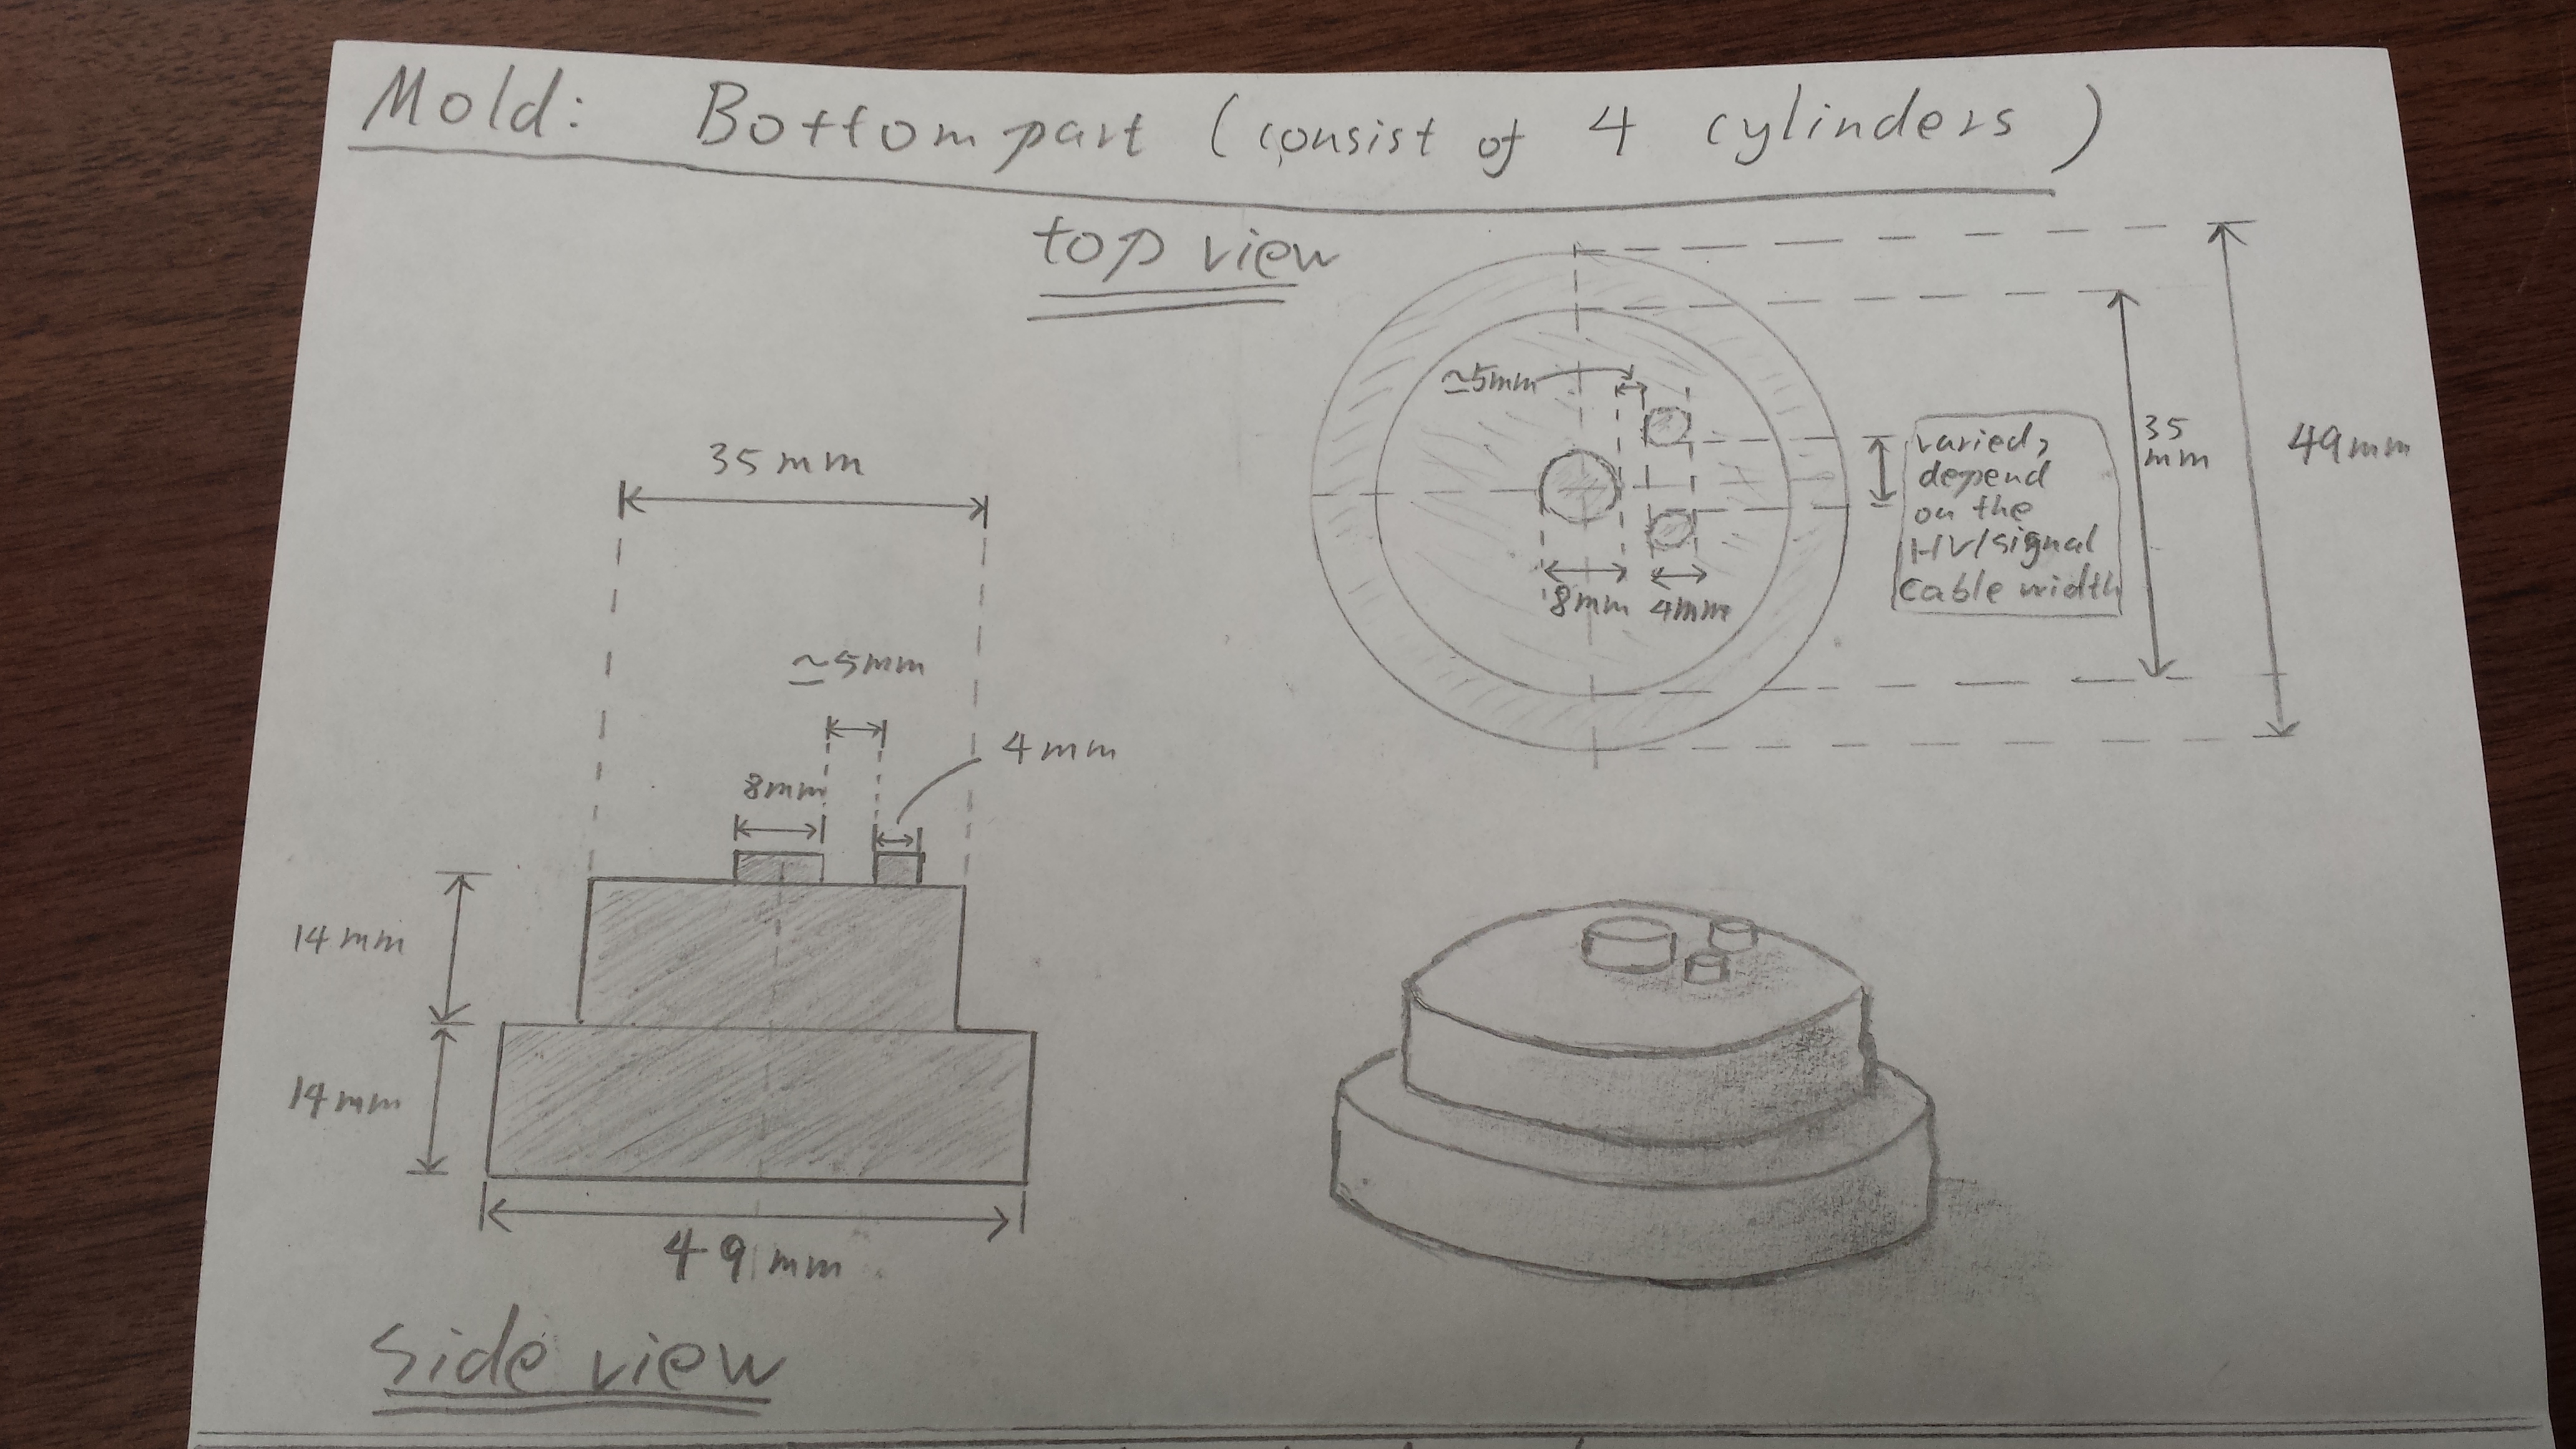 Mold: Bottom part (consist of 4 cylinders)
top view
≃5mm
8mm 4mm
varied,
depend
on the
HV/signal
Cable width
35
mm
49mm
35mm
≃5mm
4mm
8mm
14mm
14mm
49mm
side view